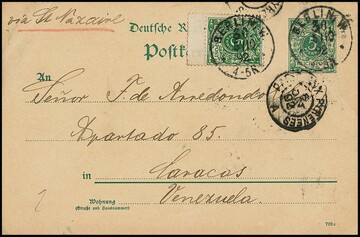 via St Nazaire
Deutsche R
Postk
BERLIN W.
BERLIN W.
4-5N
An
Señor F. de Arredondo
Apartado 85.
in Caracas
Venezuela.
Wohnung
(Straße und Hausnummer)